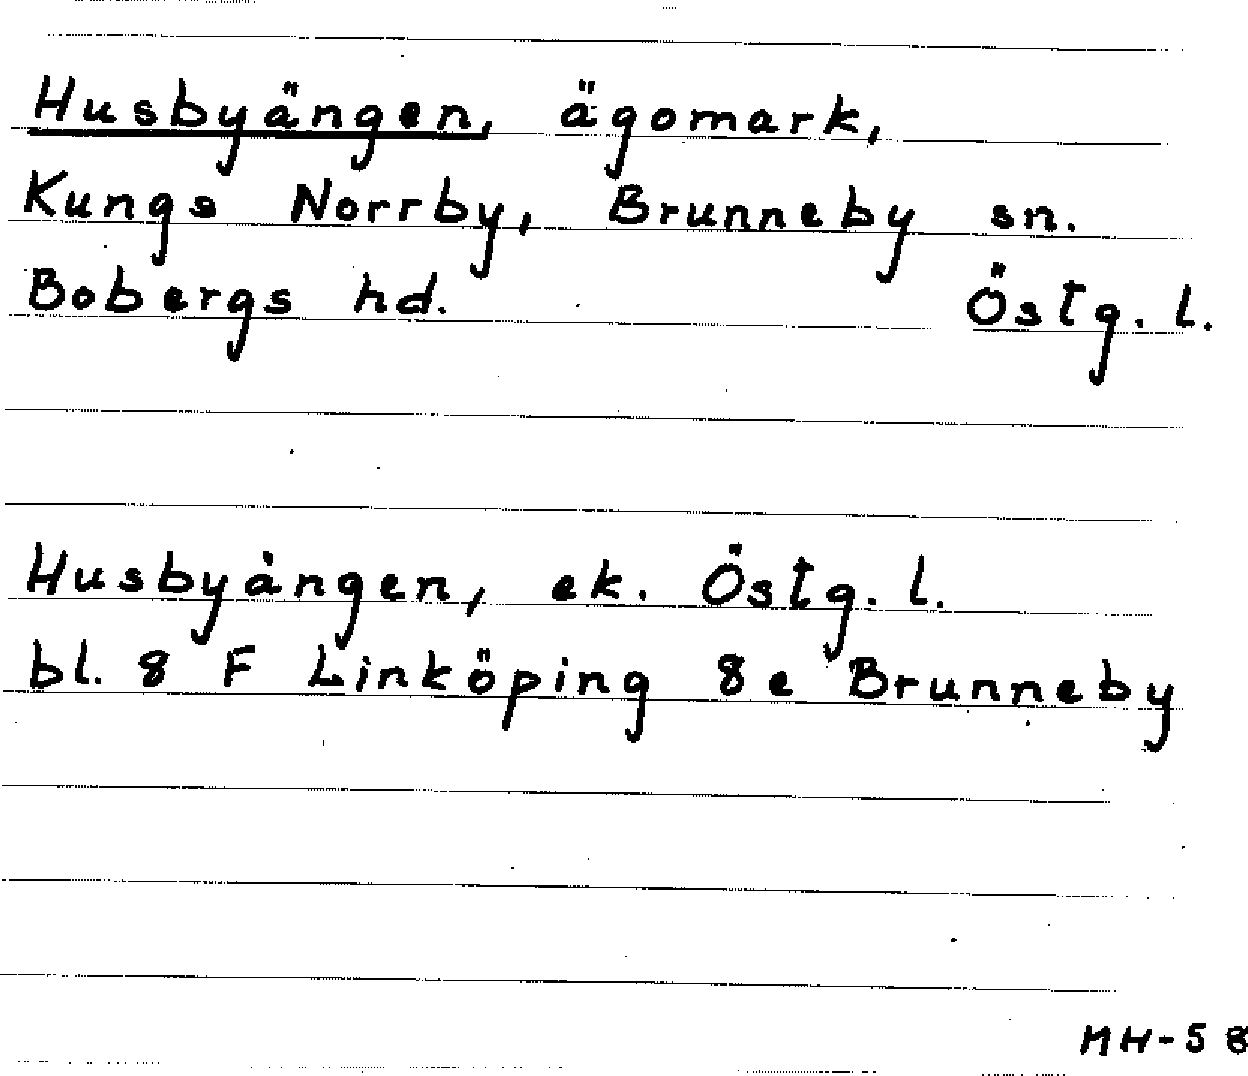 Husbyängen, ägomark,
Kungs Norrby, Brunneby sn.
Bobergs hd. Östg. l.
Husbyängen, ek. Östg. l.
bl. 8 F Linköping 8e Brunneby
MH-58